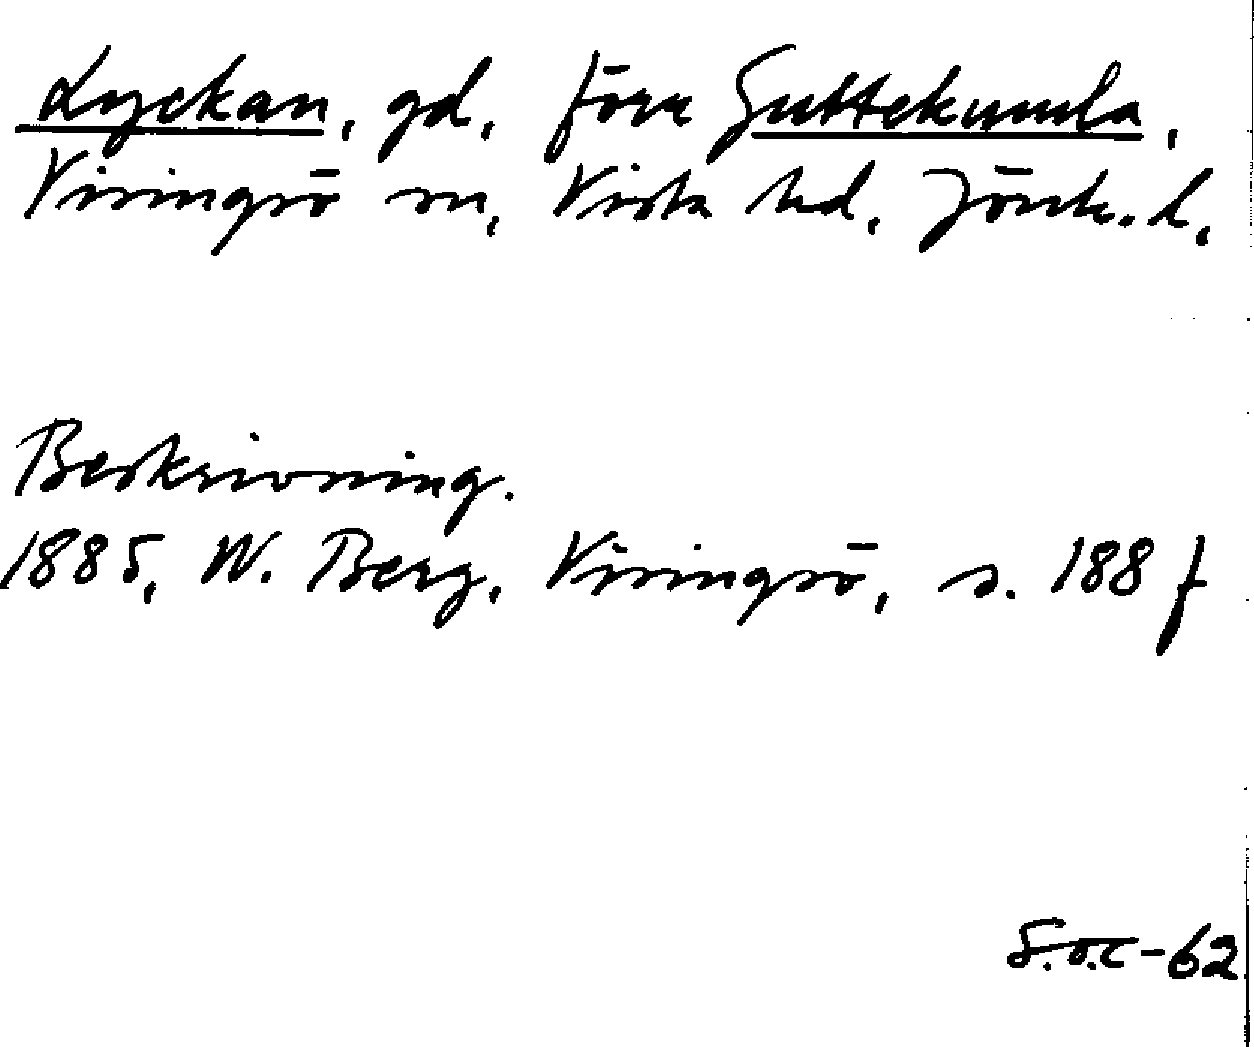 Lyckan, gd, förr Guttekumla,
Visingsö sn, Vista hd, Jönk. l,
Beskrivning.
1885, W. Berg, Visingsö, s. 188 f
S.ö.C-62